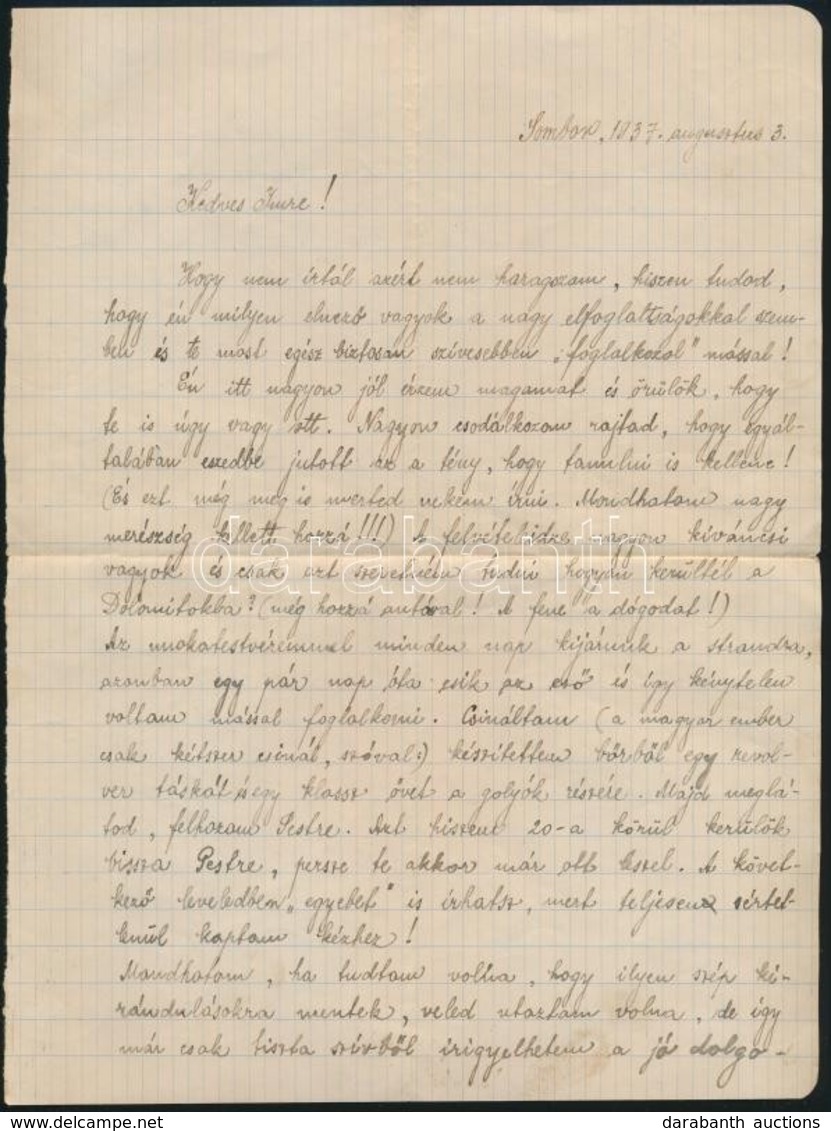 Sombor, 1937. augusztus 3.
Kedves Imre!
Hogy nem írtál azért nem haragszom, hiszen tudod,
hogy én milyen elnéző vagyok a nagy elfoglaltságokkal szem-
ben és te most egész biztosan szívesebben „foglalkozol" mással!
Én itt nagyon jól érzem magamat és örülök, hogy
te is úgy vagy ott. Nagyon csodálkozom rajtad, hogy egyál-
talában eszedbe jutott az a tény, hogy tanulni is kellene!
(És ezt még meg is merted nekem írni. Mondhatom nagy
merészség kellett hozzá!!!) A felvételeidre nagyon kíváncsi
vagyok és csak azt szeretném tudni hogyan kerültél a
Dolomitokba? (még hozzá autóval! A fene a dógodat!)
Az unokatestvéremmel minden nap kijárunk a strandra,
azonban egy pár nap óta esik az eső és így kénytelen
voltam mással foglalkozni. Csináltam (a magyar ember
csak kétszer csinál, szóval:) készítettem bőrből egy revol-
ver táskát és egy klassz övet a golyók részére. Majd meglá-
tod, felhozom Pestre. Azt hiszem 20-a körül kerülök
vissza Pestre, persze te akkor már ott leszel. A követ-
kező leveledben „egyebet" is írhatsz, mert teljesen sértet-
lenül kaptam kézhez!
Mondhatom, ha tudtam volna, hogy ilyen szép ki-
rándulásokra mentek, veled utaztam volna, de így
már csak tiszta szívből irigyelhetem a jó dolgo-
darabanth
darabanth auctions